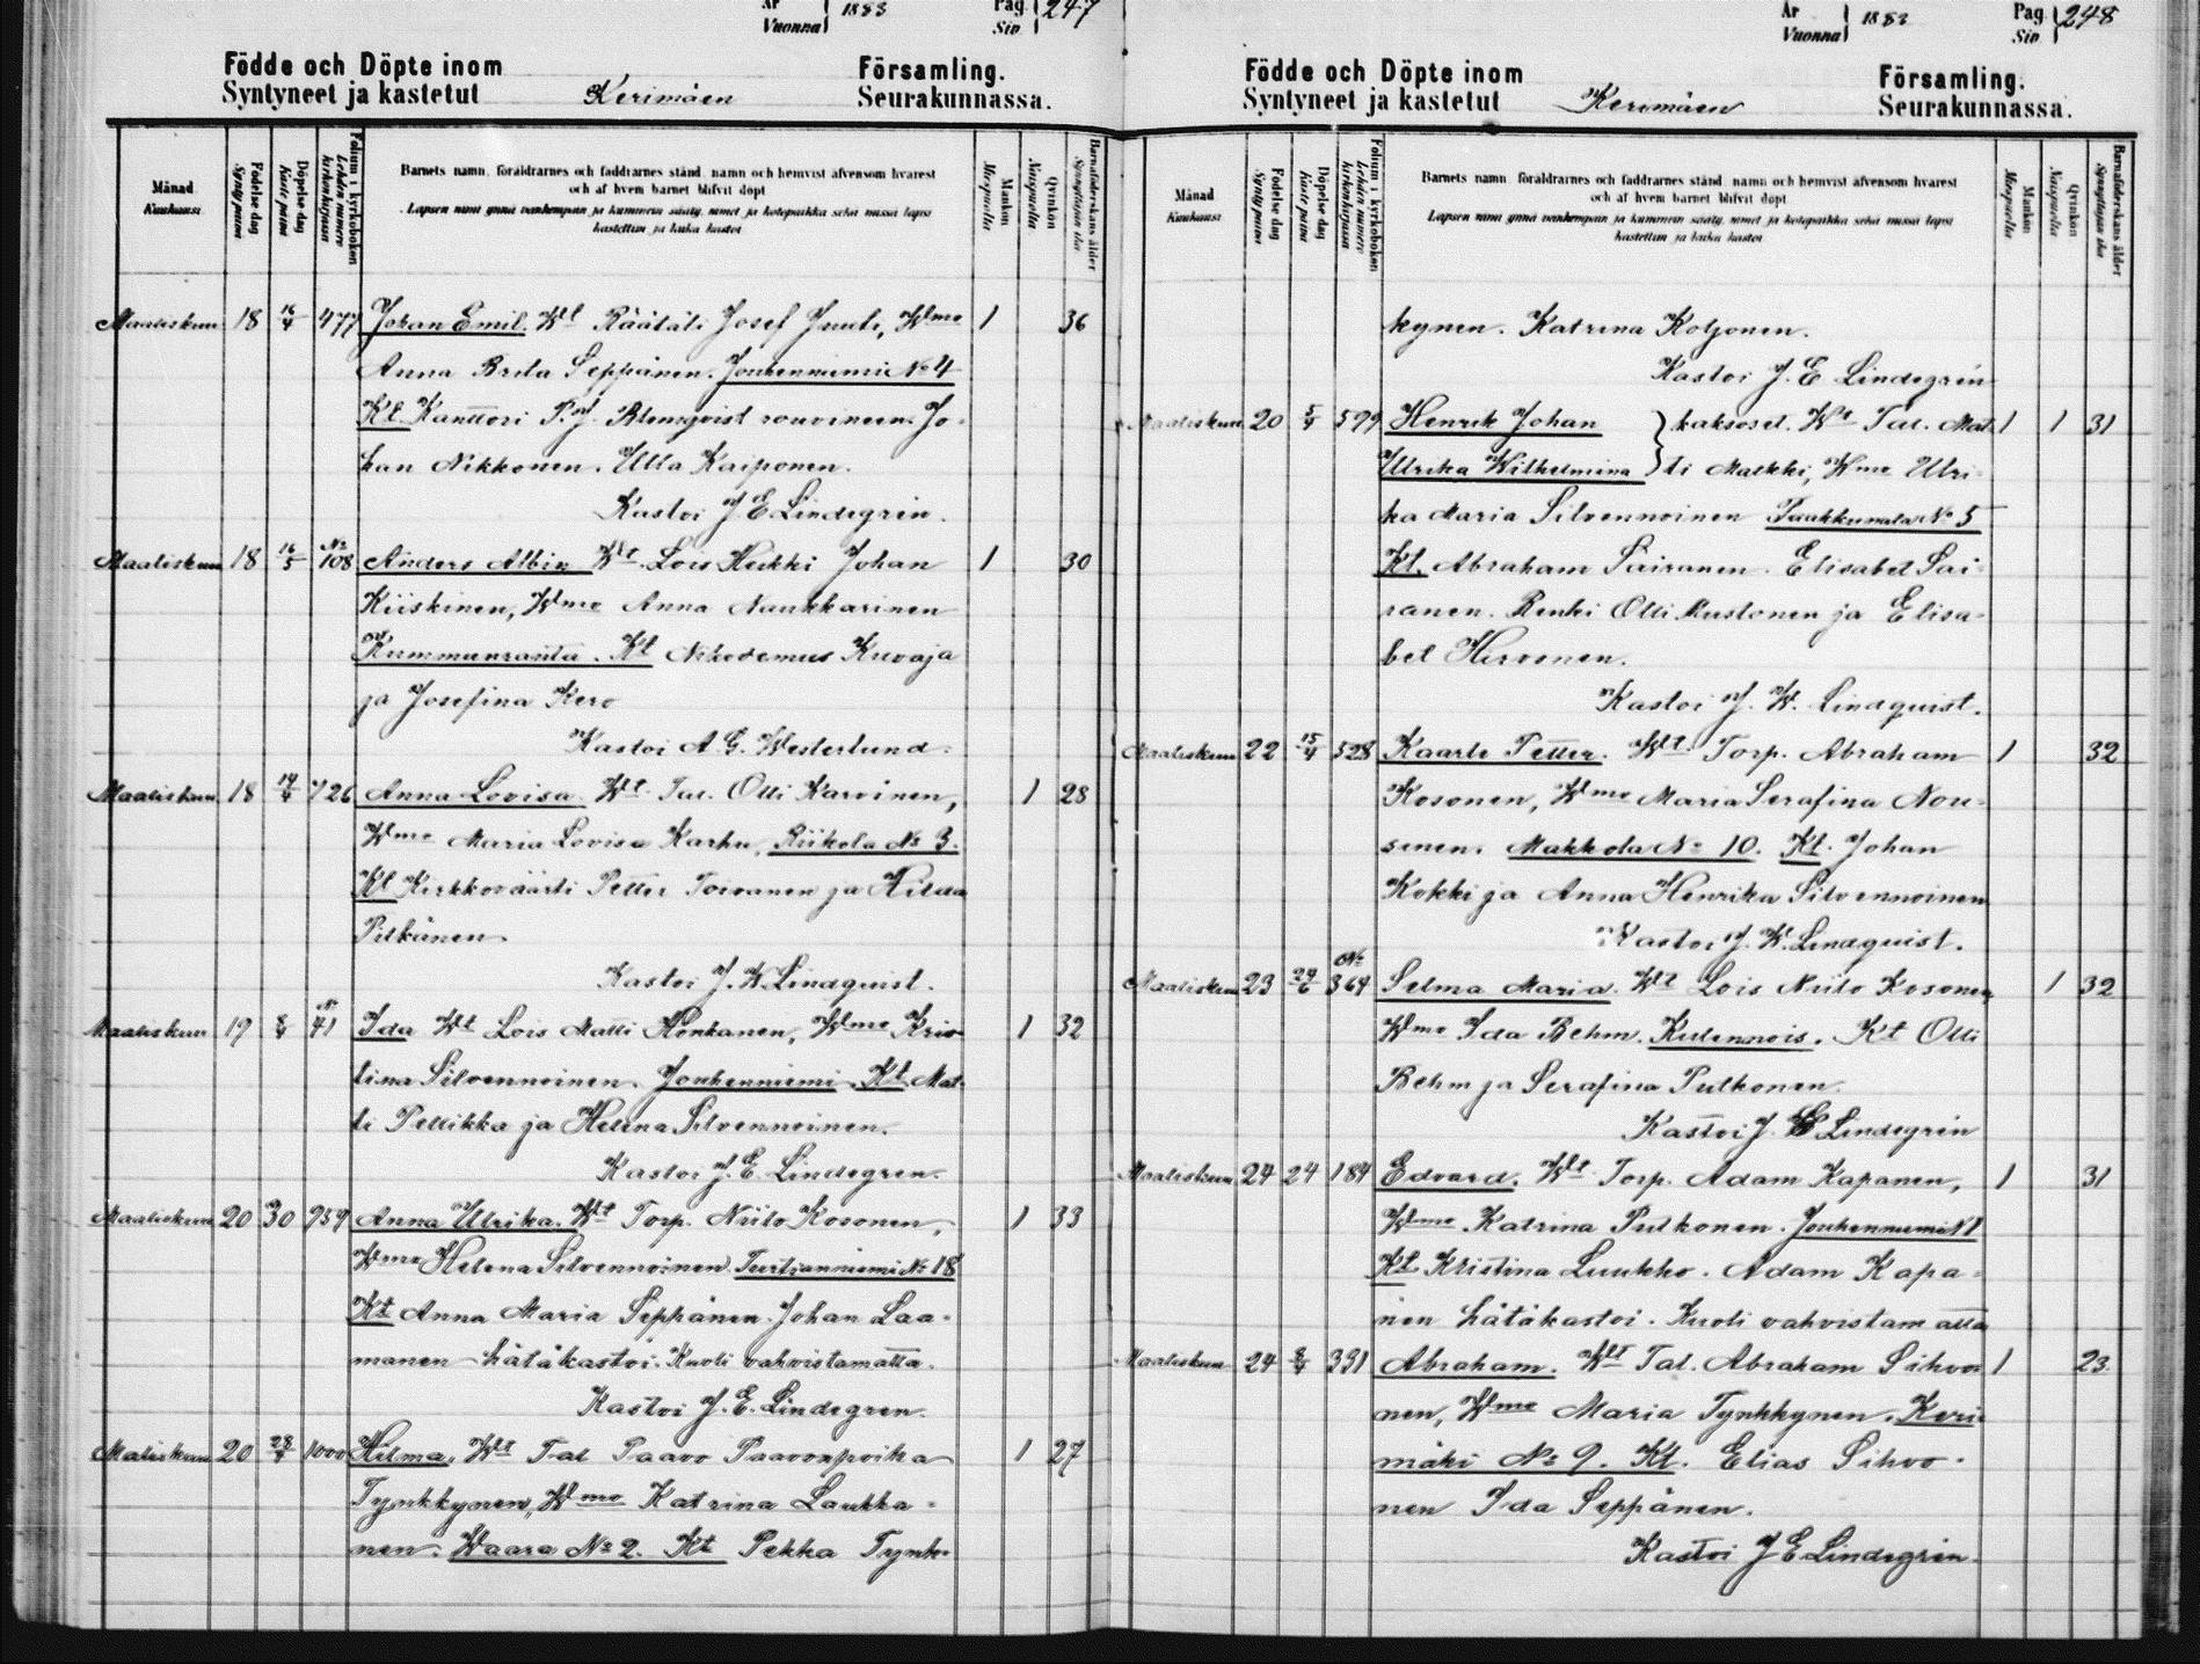 År Vuonna 1883 Pag Siv 247
Födde och Döpte inom Församling.
Syntyneet ja kastetut Kerimäen Seurakunnassa.
Månad Kuukausi
Födelse dag Synty päivä
Döpelse dag Kaste päivä
Folium i kyrkoboken Lehden numero kirkonkirjassa
Barnets namn, föräldrarnes och faddrarnes stånd, namn och hemvist äfvensom hvarest
och af hvem barnet blifvit döpt
Lapsen nimi ynnä vanhempain ja kummein sääty, nimet ja kotopaikka sekä missä lapsi
kastettiin ja kuka kastoi
Mankön Miespuolta
Qvinkön Naispuolta
Barnaföderskans ålder Synnyttäjän ikä
Maaliskuu 18 16/4 477 Johan Emil. Wt Räätäli Josef Juuti, Wmo 1 36
Anna Brita Seppänen. Jouhenniemi No 4
Kt Kanttori P. J. Blomqvist rouvineen. Jo-
han Nikkonen. Ulla Kaiponen.
Kastoi J. E Lindegrén.
Maaliskuu 18 16/5 No 108 Anders Albin Wt. Lois Heikki Johan 1 30
Kiiskinen, Wmo Anna Naukkarinen
Kummunranta. Kt Nikodemus Kuvaja
ja Josefina Kero
Kastoi A. G. Westerlund.
Maaliskuu 18 14/4 726 Anna Lovisa Wt. Tal. Olli Karvinen, 1 28
Wmo Maria Lovisa Karhu, Riikola No 3.
Kt Kirkkoväärti Petter Toivanen ja Hilda
Pitkänen.
Kastoi J. W. Lindquist.
Maaliskuu 19 8/4 No 41 Ida Wt Lois Matti Honkanen, Wmo Kris- 1 32
tina Silvennoinen. Jouhenniemi Kt Mat-
ti Pellikka ja Helena Silvennoinen.
Kastoi J. E. Lindegren.
Maaliskuu 20 30 959 Anna Ulrika. Wt Torp. Niilo Kosonen, 1 33
Wmo Helena Silvennoinen No 18
Kt Anna Maria Seppänen. Johan Laa-
manen hätäkastoi. Kuoli vahvistamatta.
Kastoi J. E. Lindegren.
Maliskuu 20 28/4 1000 Hilma, Wt Tal Paavo Paavonpoika 1 27
Tynkkynen, Wmo Katrina Laukka-
nen. Waara No 2. Kt Pekka Tynk-
År Vuonna 1883 Pag Siv 248
Födde och Döpte inom Församling.
Syntyneet ja kastetut Kerimäen Seurakunnassa.
Månad Kuukausi
Födelse dag Synty päivä
Döpelse dag Kaste päivä
Folium i kyrkoboken Lehden numero kirkonkirjassa
Barnets namn, föräldrarnes och faddrarnes stånd, namn och hemvist äfvensom hvarest
och af hvem barnet blifvit döpt
Lapsen nimi ynnä vanhempain ja kummein sääty, nimet ja kotopaikka sekä missä lapsi
kastettiin ja kuka kastoi
Mankön Miespuolta
Qvinkön Naispuolta
Barnaföderskans ålder Synnyttäjän ikä
kynen. Katrina Koljonen.
Kastoi J. E Lindegrén
Maaliskuu 20 5/4 599 Henrik Johan } kaksoset. Wt Tal. Mat- 1 1 31
Ulrika Wilhelmina } ti Malkki, Wmo Ulri-
ka Maria Silvennoinen No 5
Kt. Abraham Sairanen. Elisabet Sai-
ranen. Renki Olli Kustonen ja Elisa-
bet Hirvonen.
Kastoi J. W. Lindquist.
Maaliskuu 22 15/4 528 Kaarle Petter. Wt Torp. Abraham 1 32
Kosonen, Wmo Maria Serafina Nou-
sinen. Makkola No 10. Kt. Johan
Kokki ja Anna Henrika Silvennoinen
Kastoi J. W. Lindquist.
Maaliskuu 23 29/6 No 364 Selma Maria. Wt Lois Niilo Kosonen 1 32
Wmo Ida Behm. Kulennois. Kt Olli
Behm ja Serafina Putkonen.
Kastoi J. E Lindegrén
Maaliskuu 24 24 184 Edvard. Wt Torp. Adam Kapanen, 1 31
Wmo Katrina Putkonen. Jouhenniemi N 1
Kt Kristina Luukko. Adam Kapa-
nen hätäkastoi. Kuoli vahvistamatta
Maaliskuu 24 8/4 331 Abraham. Wt Tal. Abraham Sihvo- 1 23
nen, Wmo Maria Tynkkynen. Keri-
mäki No 9. Kt. Elias Sihvo-
nen Ida Seppänen.
Kastoi J E Lindegrén.